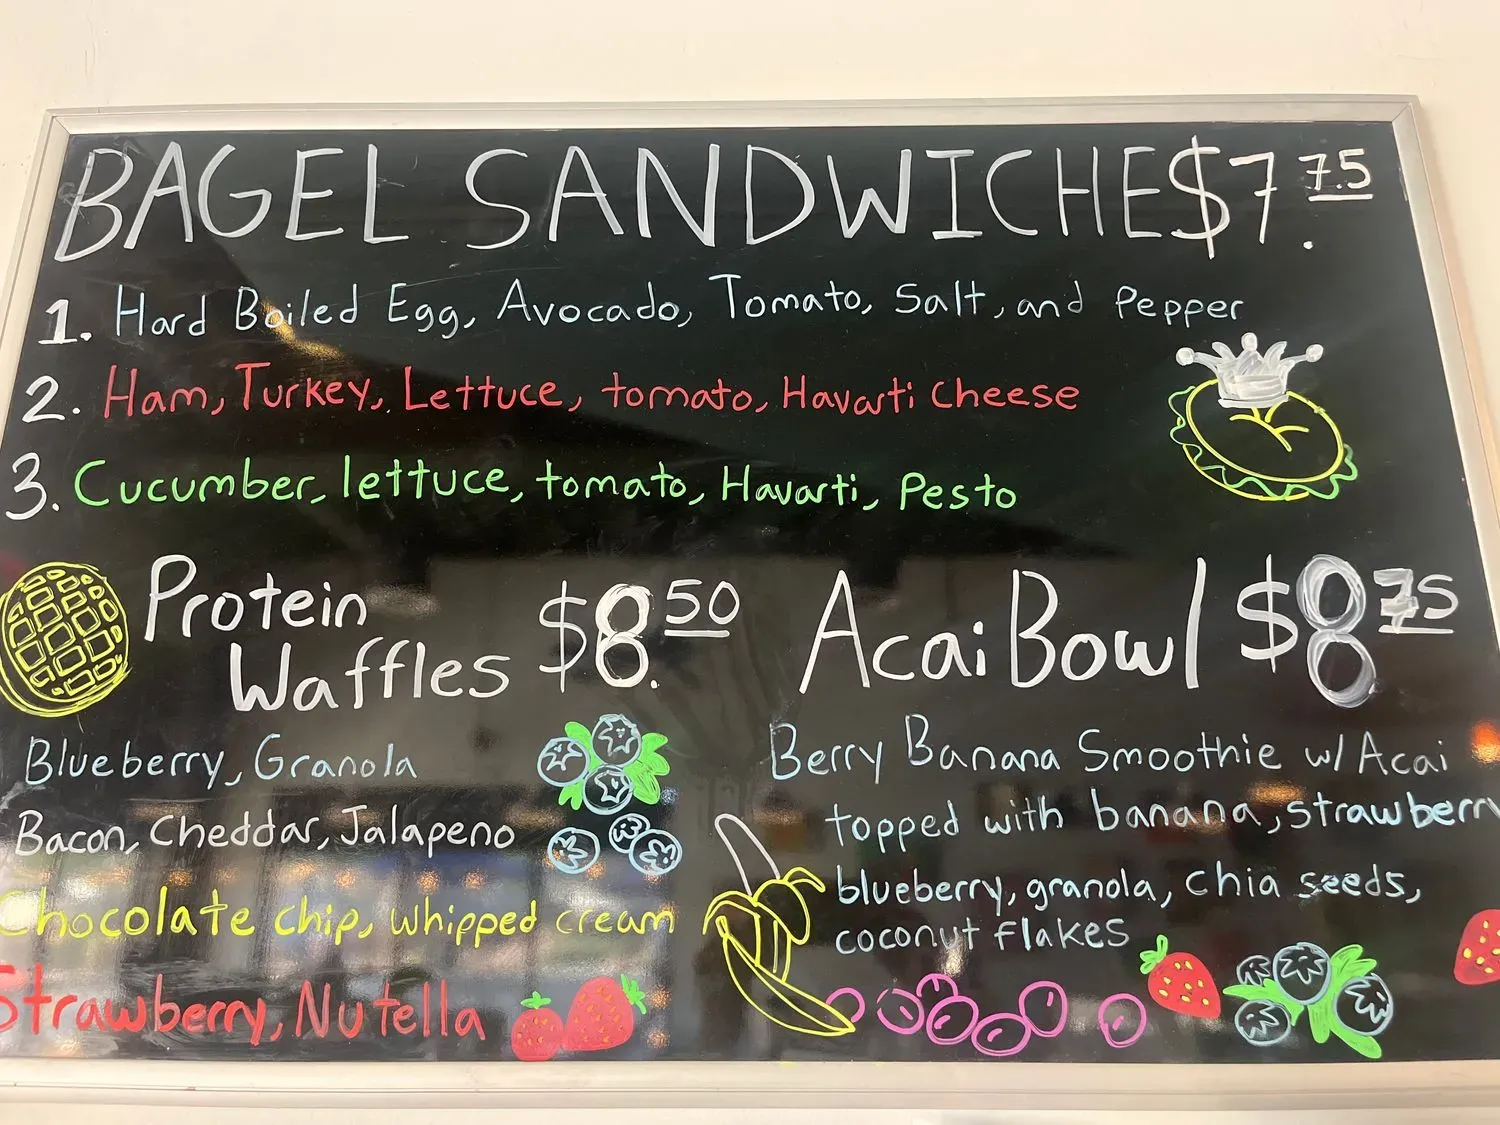 BAGEL SANDWICHE$7.75
1. Hard Boiled Egg, Avocado, Tomato, Salt, and Pepper
2. Ham, Turkey, Lettuce, tomato, Havarti Cheese
3. Cucumber, lettuce, tomato, Havarti, Pesto
Protein
Waffles $8.50
Blueberry, Granola
Bacon, Cheddar, Jalapeno
Chocolate chip, whipped cream
Strawberry, Nutella
Acai Bowl $8.75
Berry Banana Smoothie w/ Acai
topped with banana, strawberry
blueberry, granola, chia seeds,
coconut flakes